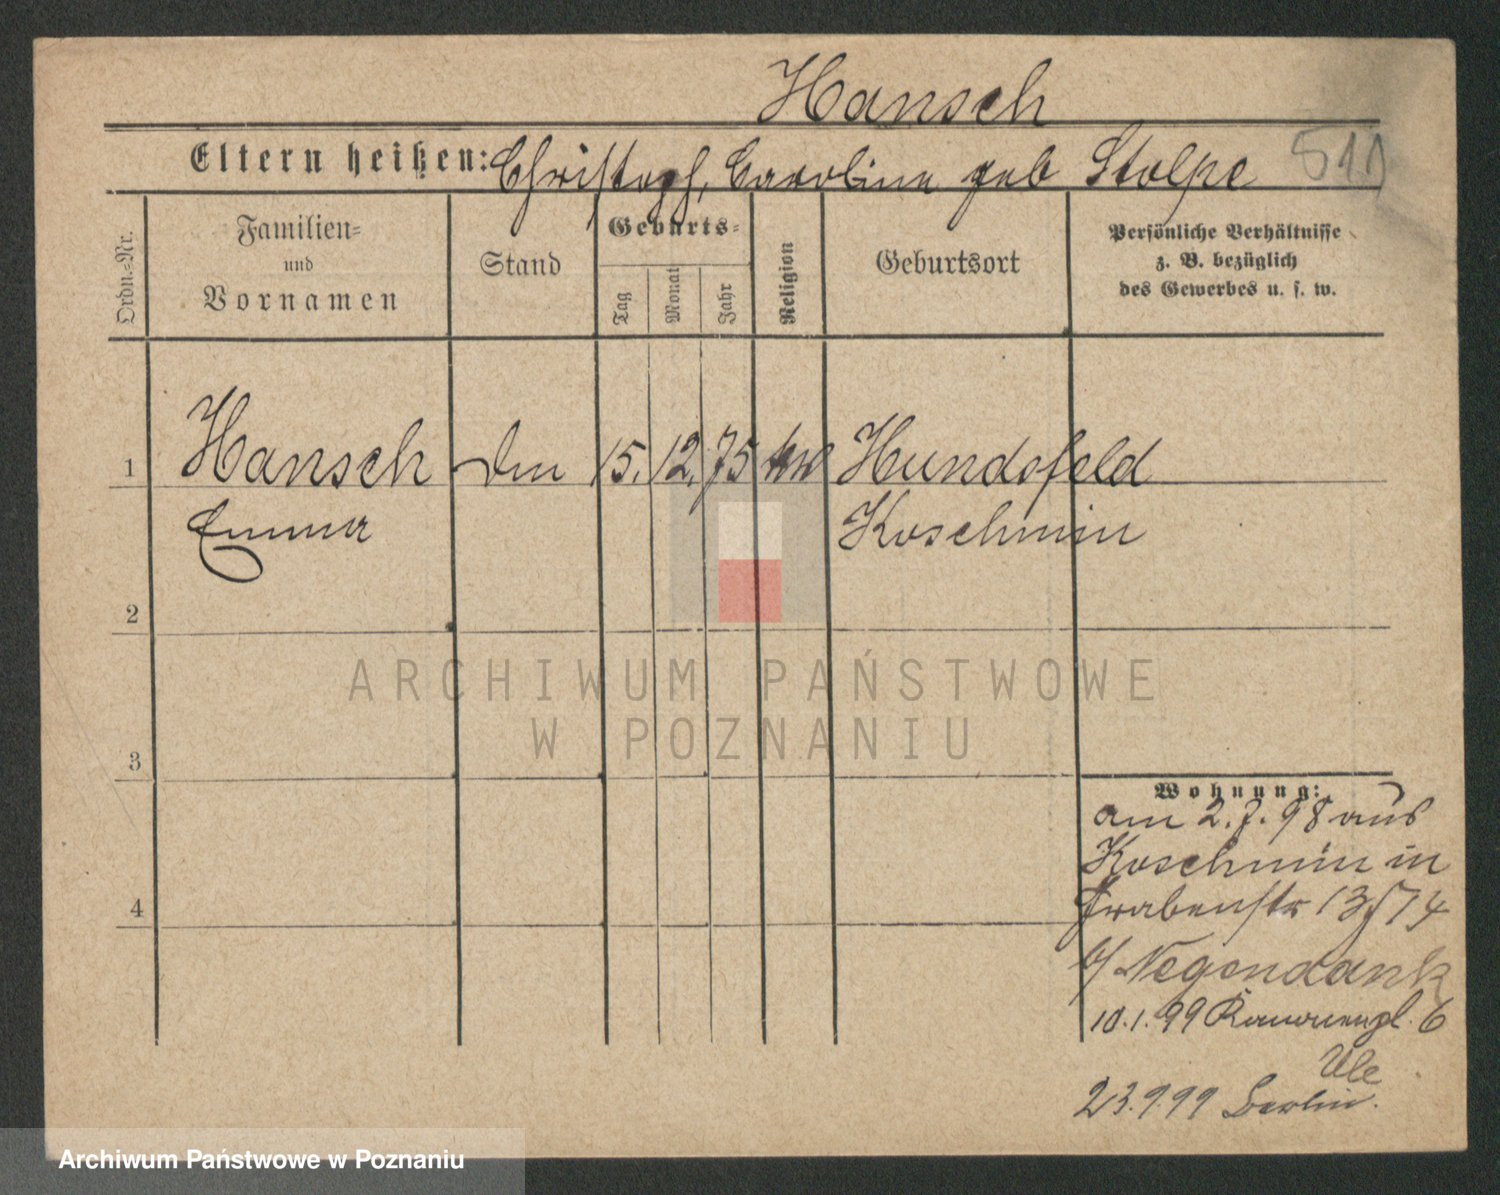 Hansch
Eltern heißen: Christoph, Caroline geb Stolpe
511
Ordn.-Nr.
Familien-
und
Vornamen
Stand
Geburts-
Tag
Monat
Jahr
Religion
Geburtsort
Persönliche Verhältnisse
z. B. bezüglich
des Gewerbes u. s. w.
1 Hansch 15. 12. 75 Hundsfeld
Emma Koschmin
2
3
4
Wohnung:
am 2.7.98 aus
Koschmin in
Grabenstr 13/14
b/ Negendank
10.1.99 6
Ule
23.9.99 Berlin.
ARCHIWUM PAŃSTWOWE
W POZNANIU
Archiwum Państwowe w Poznaniu